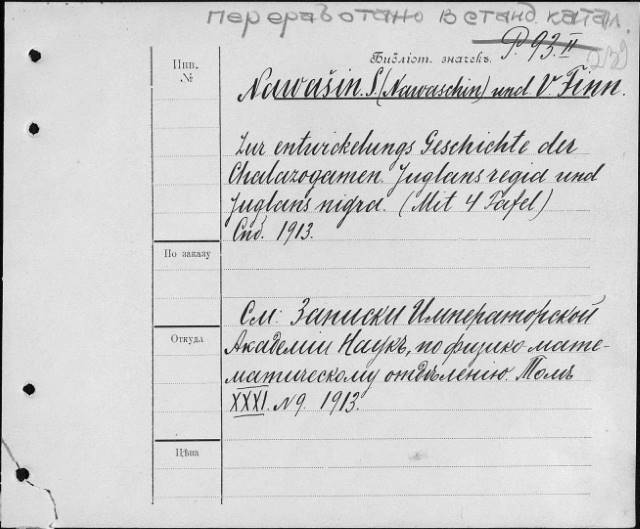 переработано в станд. катал.
Инв. №
Библіот. значекъ.
P. 93. II
Nawašin. S. (Nawaschin) und V Finn.
Zur entwickelungs Geschichte der
Chalazogamen. Juglans regia und
Juglans nigra. (Mit 4 Tafel)
Спб. 1913.
По заказу
См: Записки Императорской
Откуда
Академіи Наукъ, по физико мате-
матическому отдѣленію. Томъ
XXXI. № 9. 1913.
Цѣна